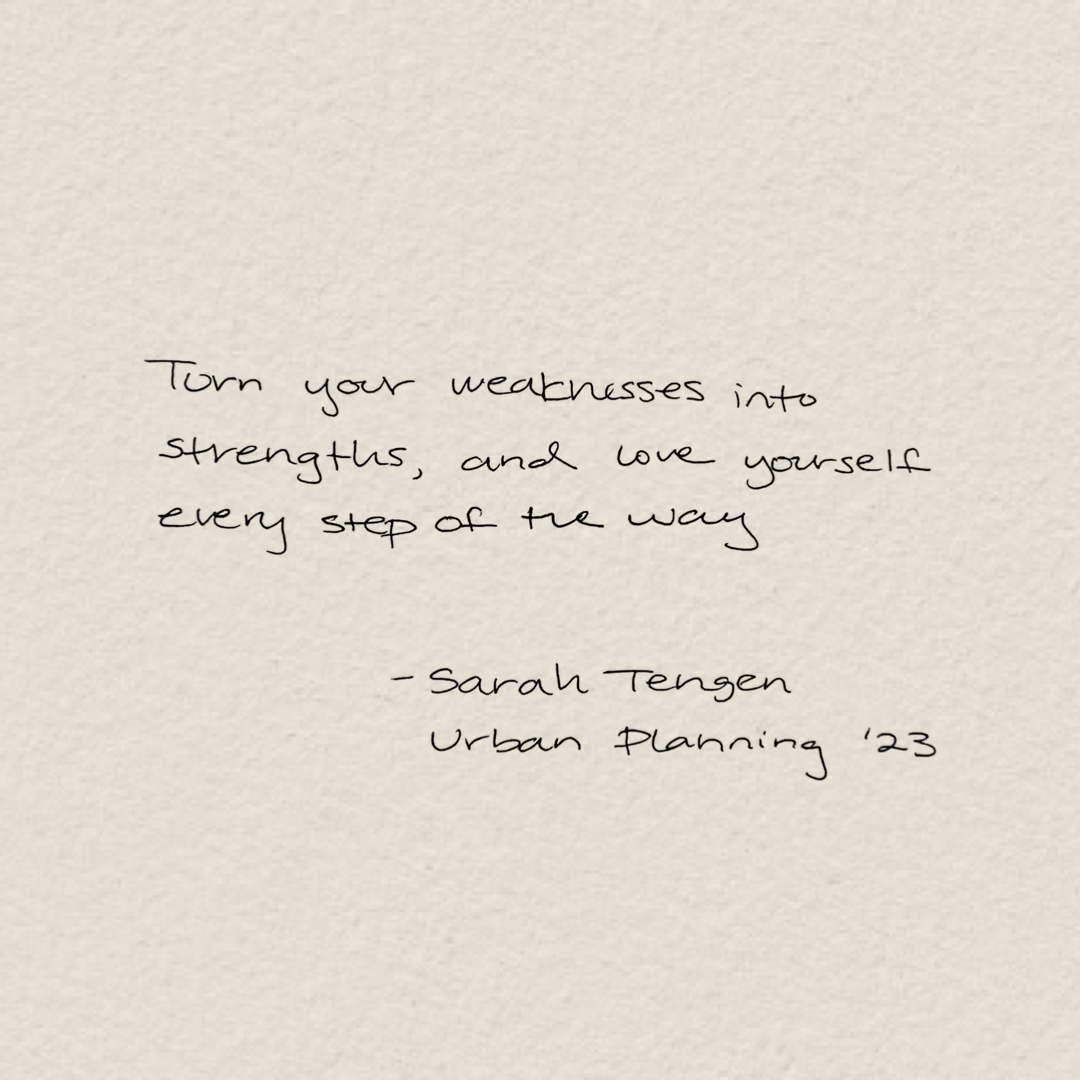 Turn your weaknesses into
strengths, and love yourself
every step of the way
- Sarah Tengen
Urban Planning '23